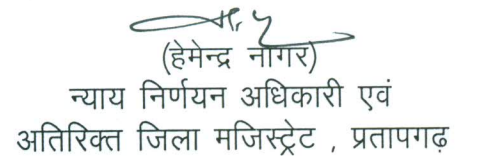 (हेमेन्द्र नागर)
न्याय निर्णयन अधिकारी एवं
अतिरिक्त जिला मजिस्ट्रेट , प्रतापगढ़